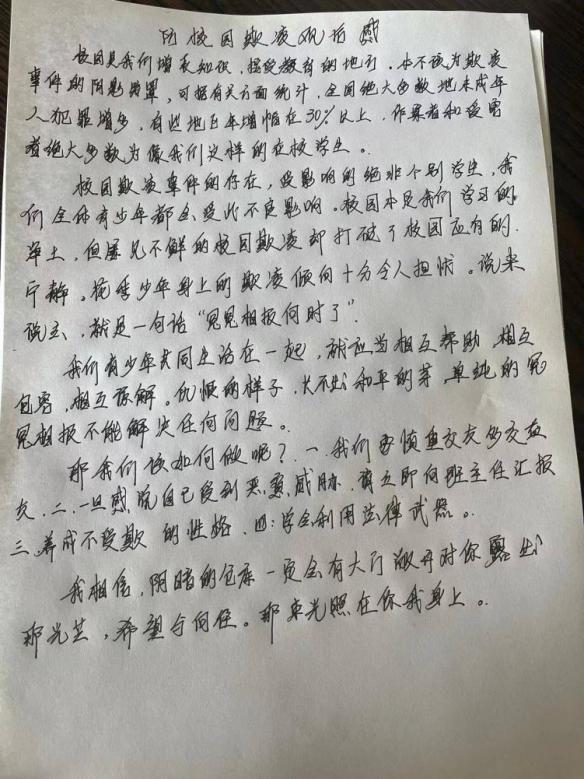 防校园欺凌观后感
校园是我们增长知识,接受教育的地方。本不该为欺凌
事件的阴影笼罩,可据有关方面统计,全国绝大多数地未成年
人犯罪增多,有些地区年增幅在30%以上,作案者和受害
者绝大多数为像我们这样的在校学生。
校园欺凌事件的存在,受影响的绝非个别学生,我
们全体青少年都会受此不良影响。校园本是我们学习的
净土,但屡见不鲜的校园欺凌却打破了校园应有的
宁静。花季少年身上的欺凌倾向十分令人担忧。说来
说去,就是一句话“冤冤相报何时了”.
我们青少年共同生活在一起,就应当相互帮助,相互
包容,相互谅解。仇恨的种子,长不出和平的芽,单纯的冤
冤相报不能解决任何问题。
那我们该如何做呢?一.我们要慎重交友多交益
友.二.一旦感觉自己受到恶意威胁,请立即向班主任汇报
三.养成不受欺的性格.四:学会利用法律武器。
我相信,阴暗的仓库一定会有大门敞开对你露出
那光芒,希望与向往。那束光照在你我身上。